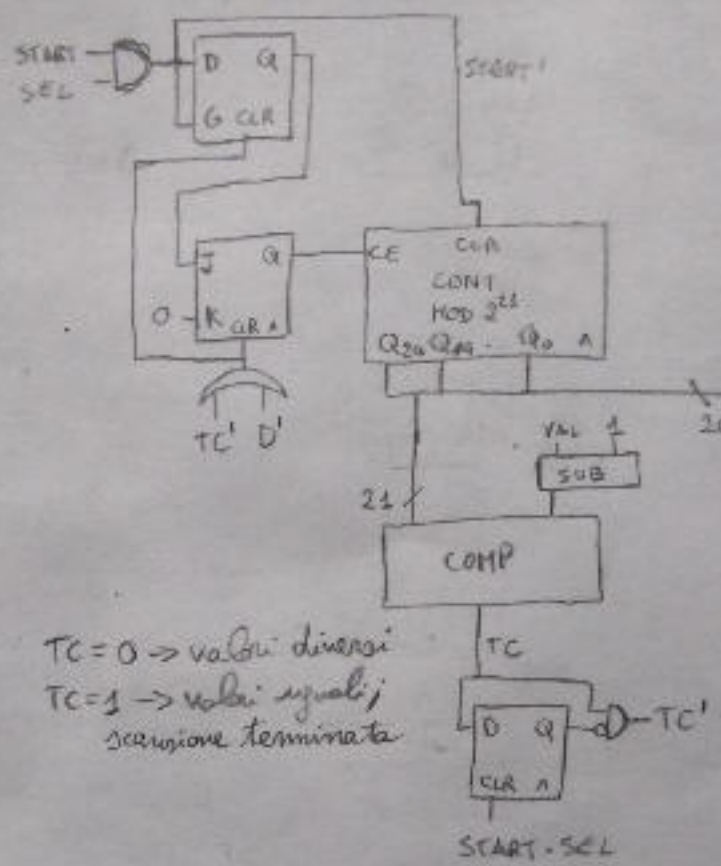 START
SEL
D Q
G CLR
START'
J Q
0 K
CLR
CE CLR
CONT
MOD 2^21
Q20 Q19 . Q0
TC' D'
VAL 1
SUB
21
COMP
TC
TC = 0 -> valori diversi
TC = 1 -> valori uguali;
scansione terminata
D Q
TC'
CLR
START . SEL